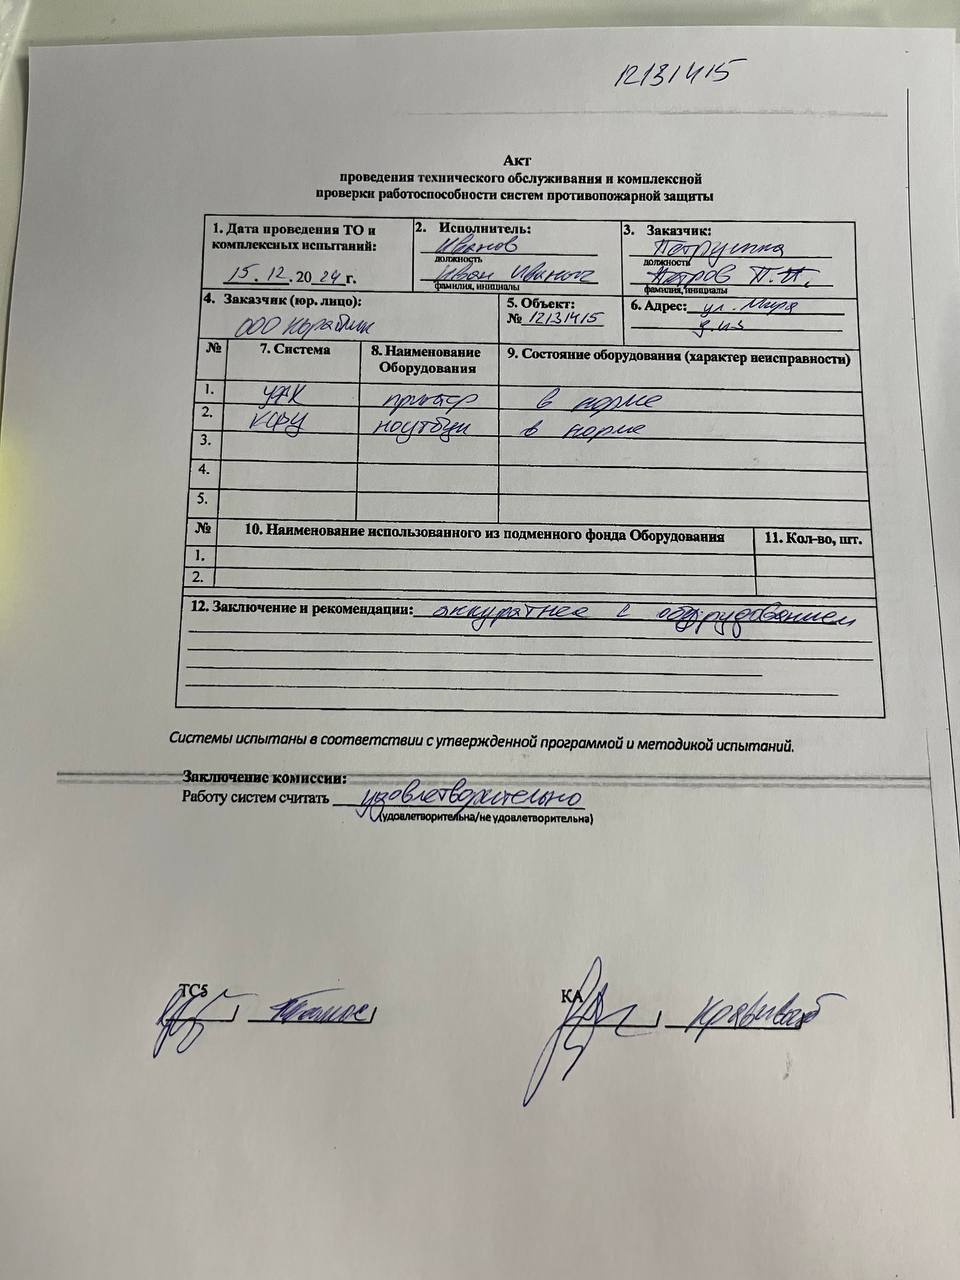 12131415
Акт
проведения технического обслуживания и комплексной
проверки работоспособности систем противопожарной защиты
1. Дата проведения ТО и комплексных испытаний:
15.12.2024 г.
2. Исполнитель:
Иванов
должность
Иван Иваныч
фамилия, инициалы
3. Заказчик:
должность
Петров П.П.
фамилия, инициалы
4. Заказчик (юр. лицо):
ООО Кораблик
5. Объект:
№ 12131415
6. Адрес: ул. Мира
№ 7. Система 8. Наименование Оборудования 9. Состояние оборудования (характер неисправности)
1. принтер в норме
2. ноутбук в норме
3.
4.
5.
№ 10. Наименование использованного из подменного фонда Оборудования 11. Кол-во, шт.
1.
2.
12. Заключение и рекомендации: аккуратнее с оборудованием
Системы испытаны в соответствии с утвержденной программой и методикой испытаний.
Заключение комиссии:
Работу систем считать удовлетворительно
(удовлетворительна/не удовлетворительна)
ТС5
КА